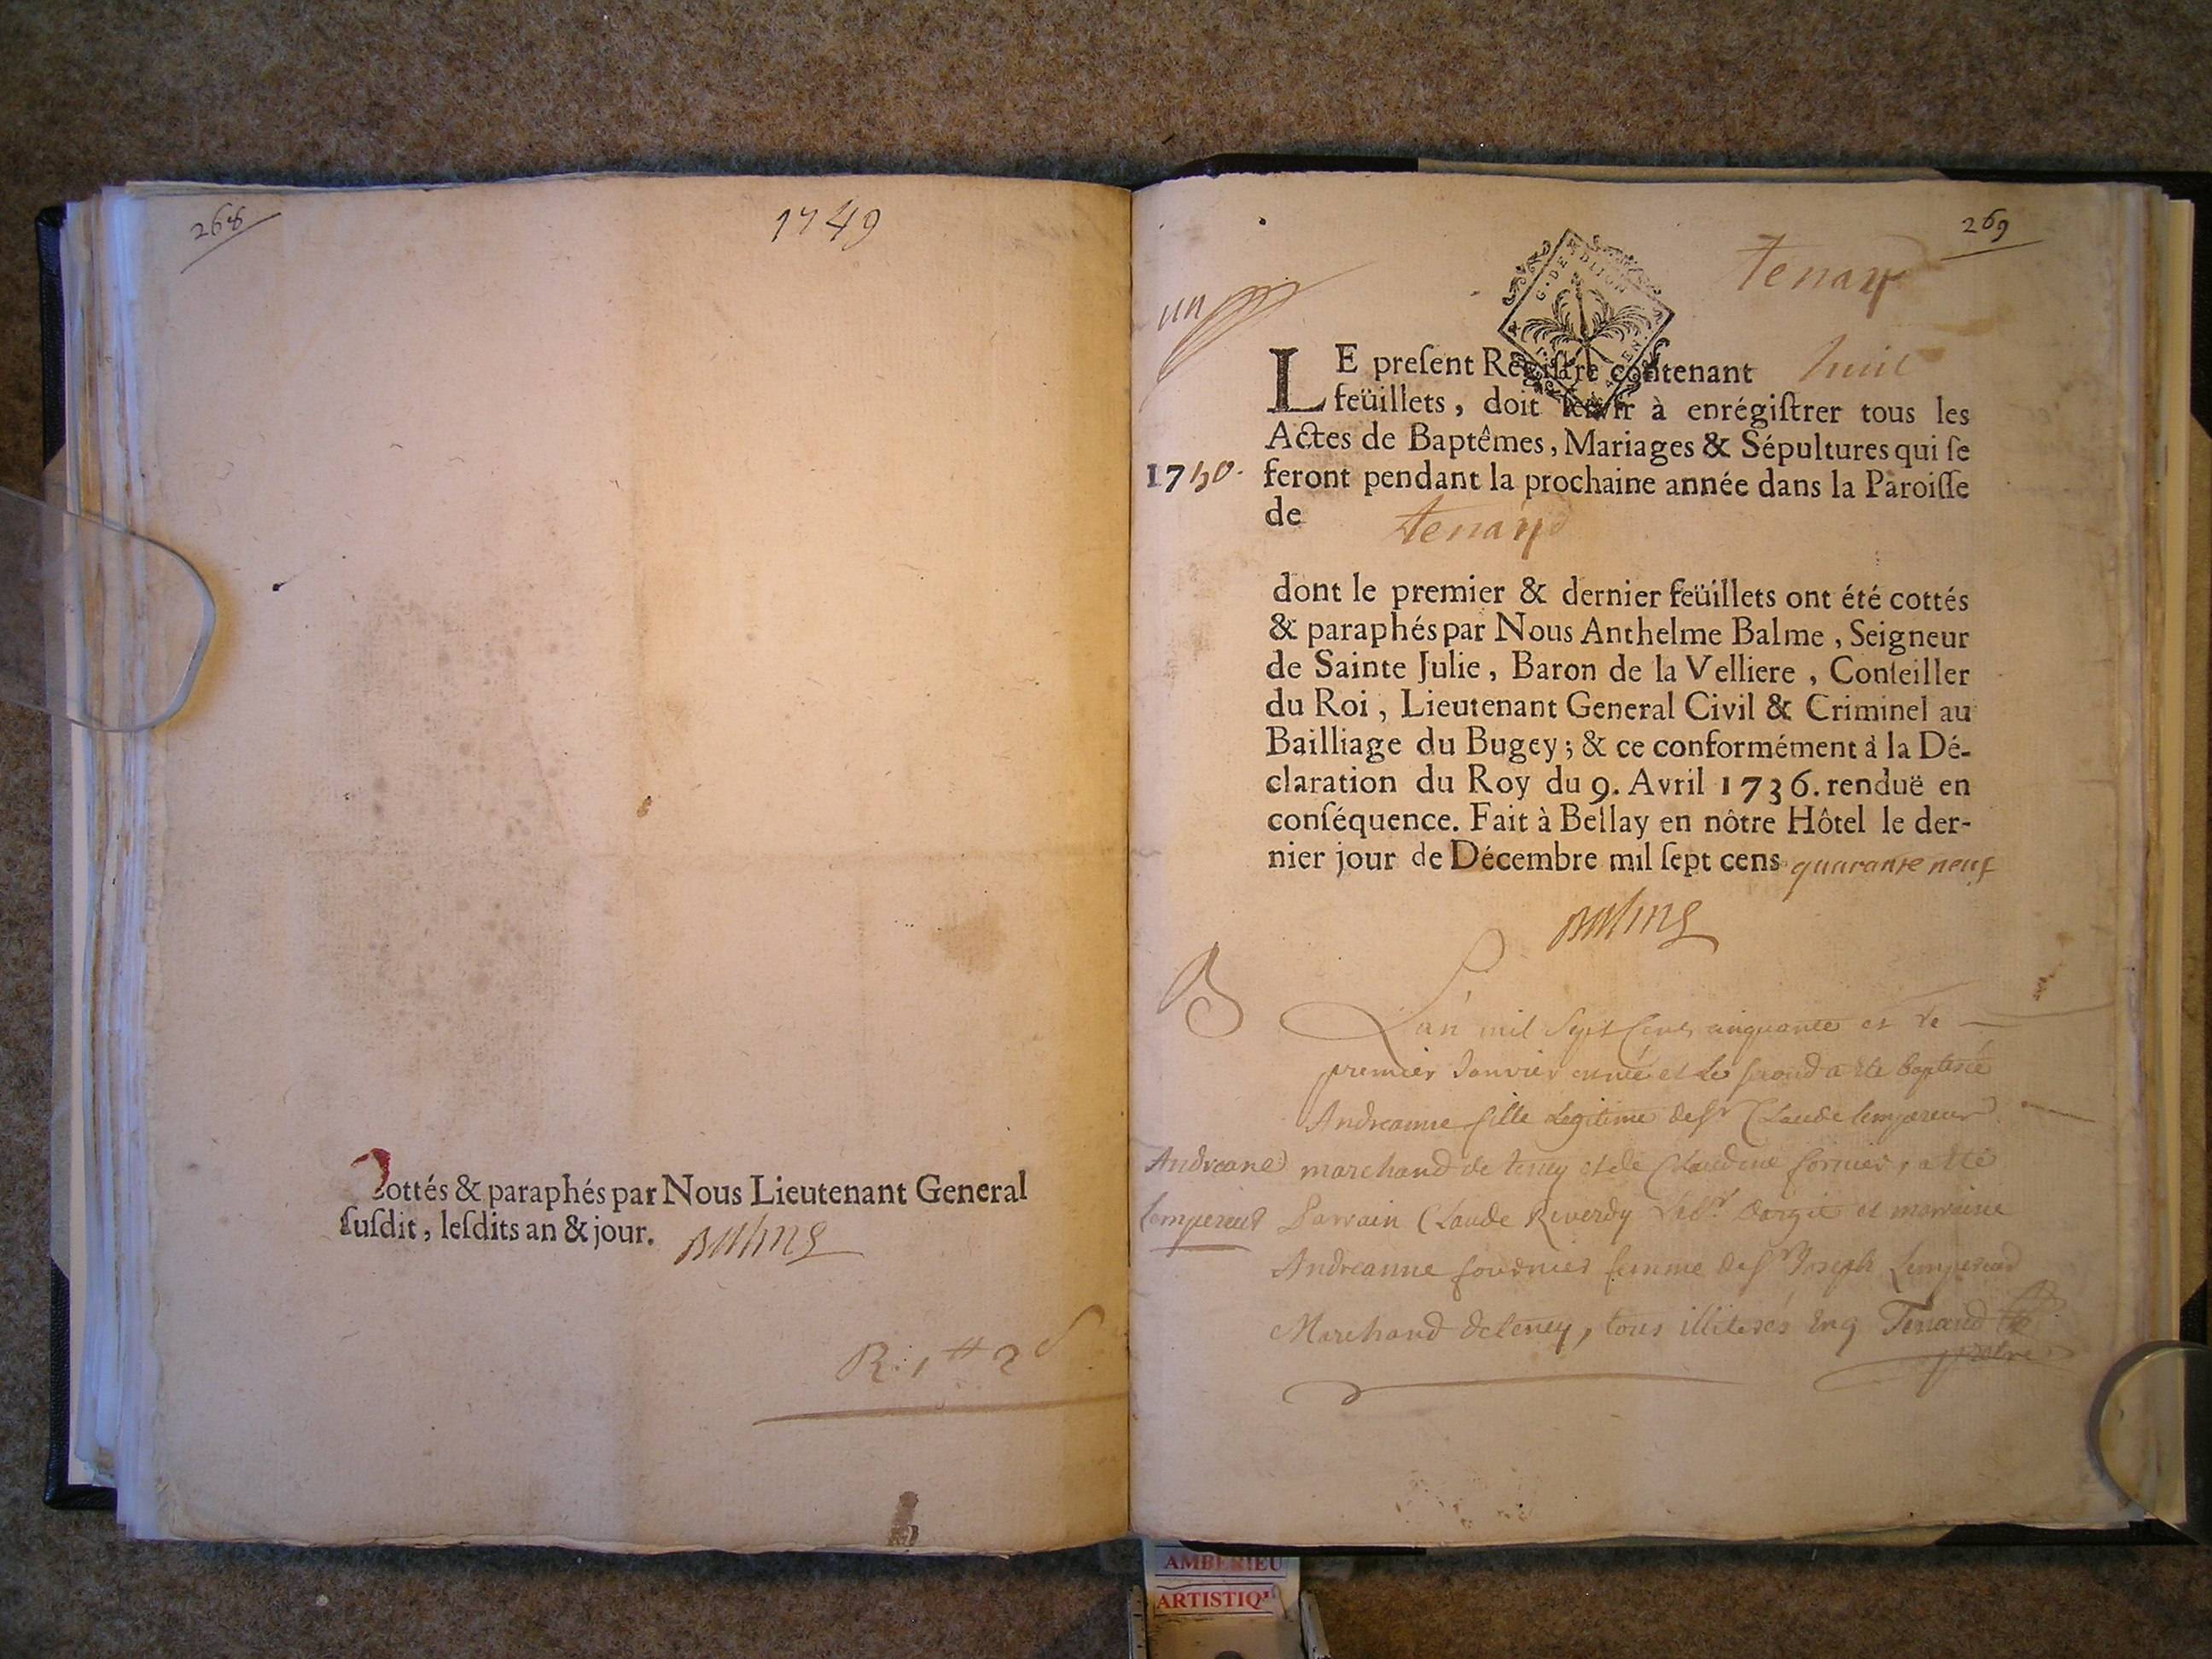 268
1749
Cottés & paraphés par Nous Lieutenant General
ſuſdit, leſdits an & jour. Balme
R. 1 ᵗᵗ 2 ˢ
269
tenay
un
G. DE DIJON
LE preſent Regiſtre contenant huit
feüillets, doit ſervir à enrégiſtrer tous les
Actes de Baptêmes, Mariages & Sépultures qui ſe
1750. feront pendant la prochaine année dans la Paroiſſe
de tenay
dont le premier & dernier feüillets ont été cottés
& paraphés par Nous Anthelme Balme, Seigneur
de Sainte Julie, Baron de la Velliere, Conſeiller
du Roi, Lieutenant General Civil & Criminel au
Bailliage du Bugey; & ce conformément à la Dé-
claration du Roy du 9. Avril 1736. renduë en
conſéquence. Fait à Bellay en nôtre Hôtel le der-
nier jour de Décembre mil ſept cens quarante neuf
Balme
B
L'an mil Sept Cens cinquante et le
premier Janvier est née et le second a été baptisée
Andreanne fille Legitime de Sr Claude Lempereur
Andreane marchand de teney et de Claudine fornier, a été
Lempereur Parrain Claude Reverdy et marraine
Andreanne fournier femme de Sr Joseph Lempereur
Marchand de teney, tous illiterés Tenand